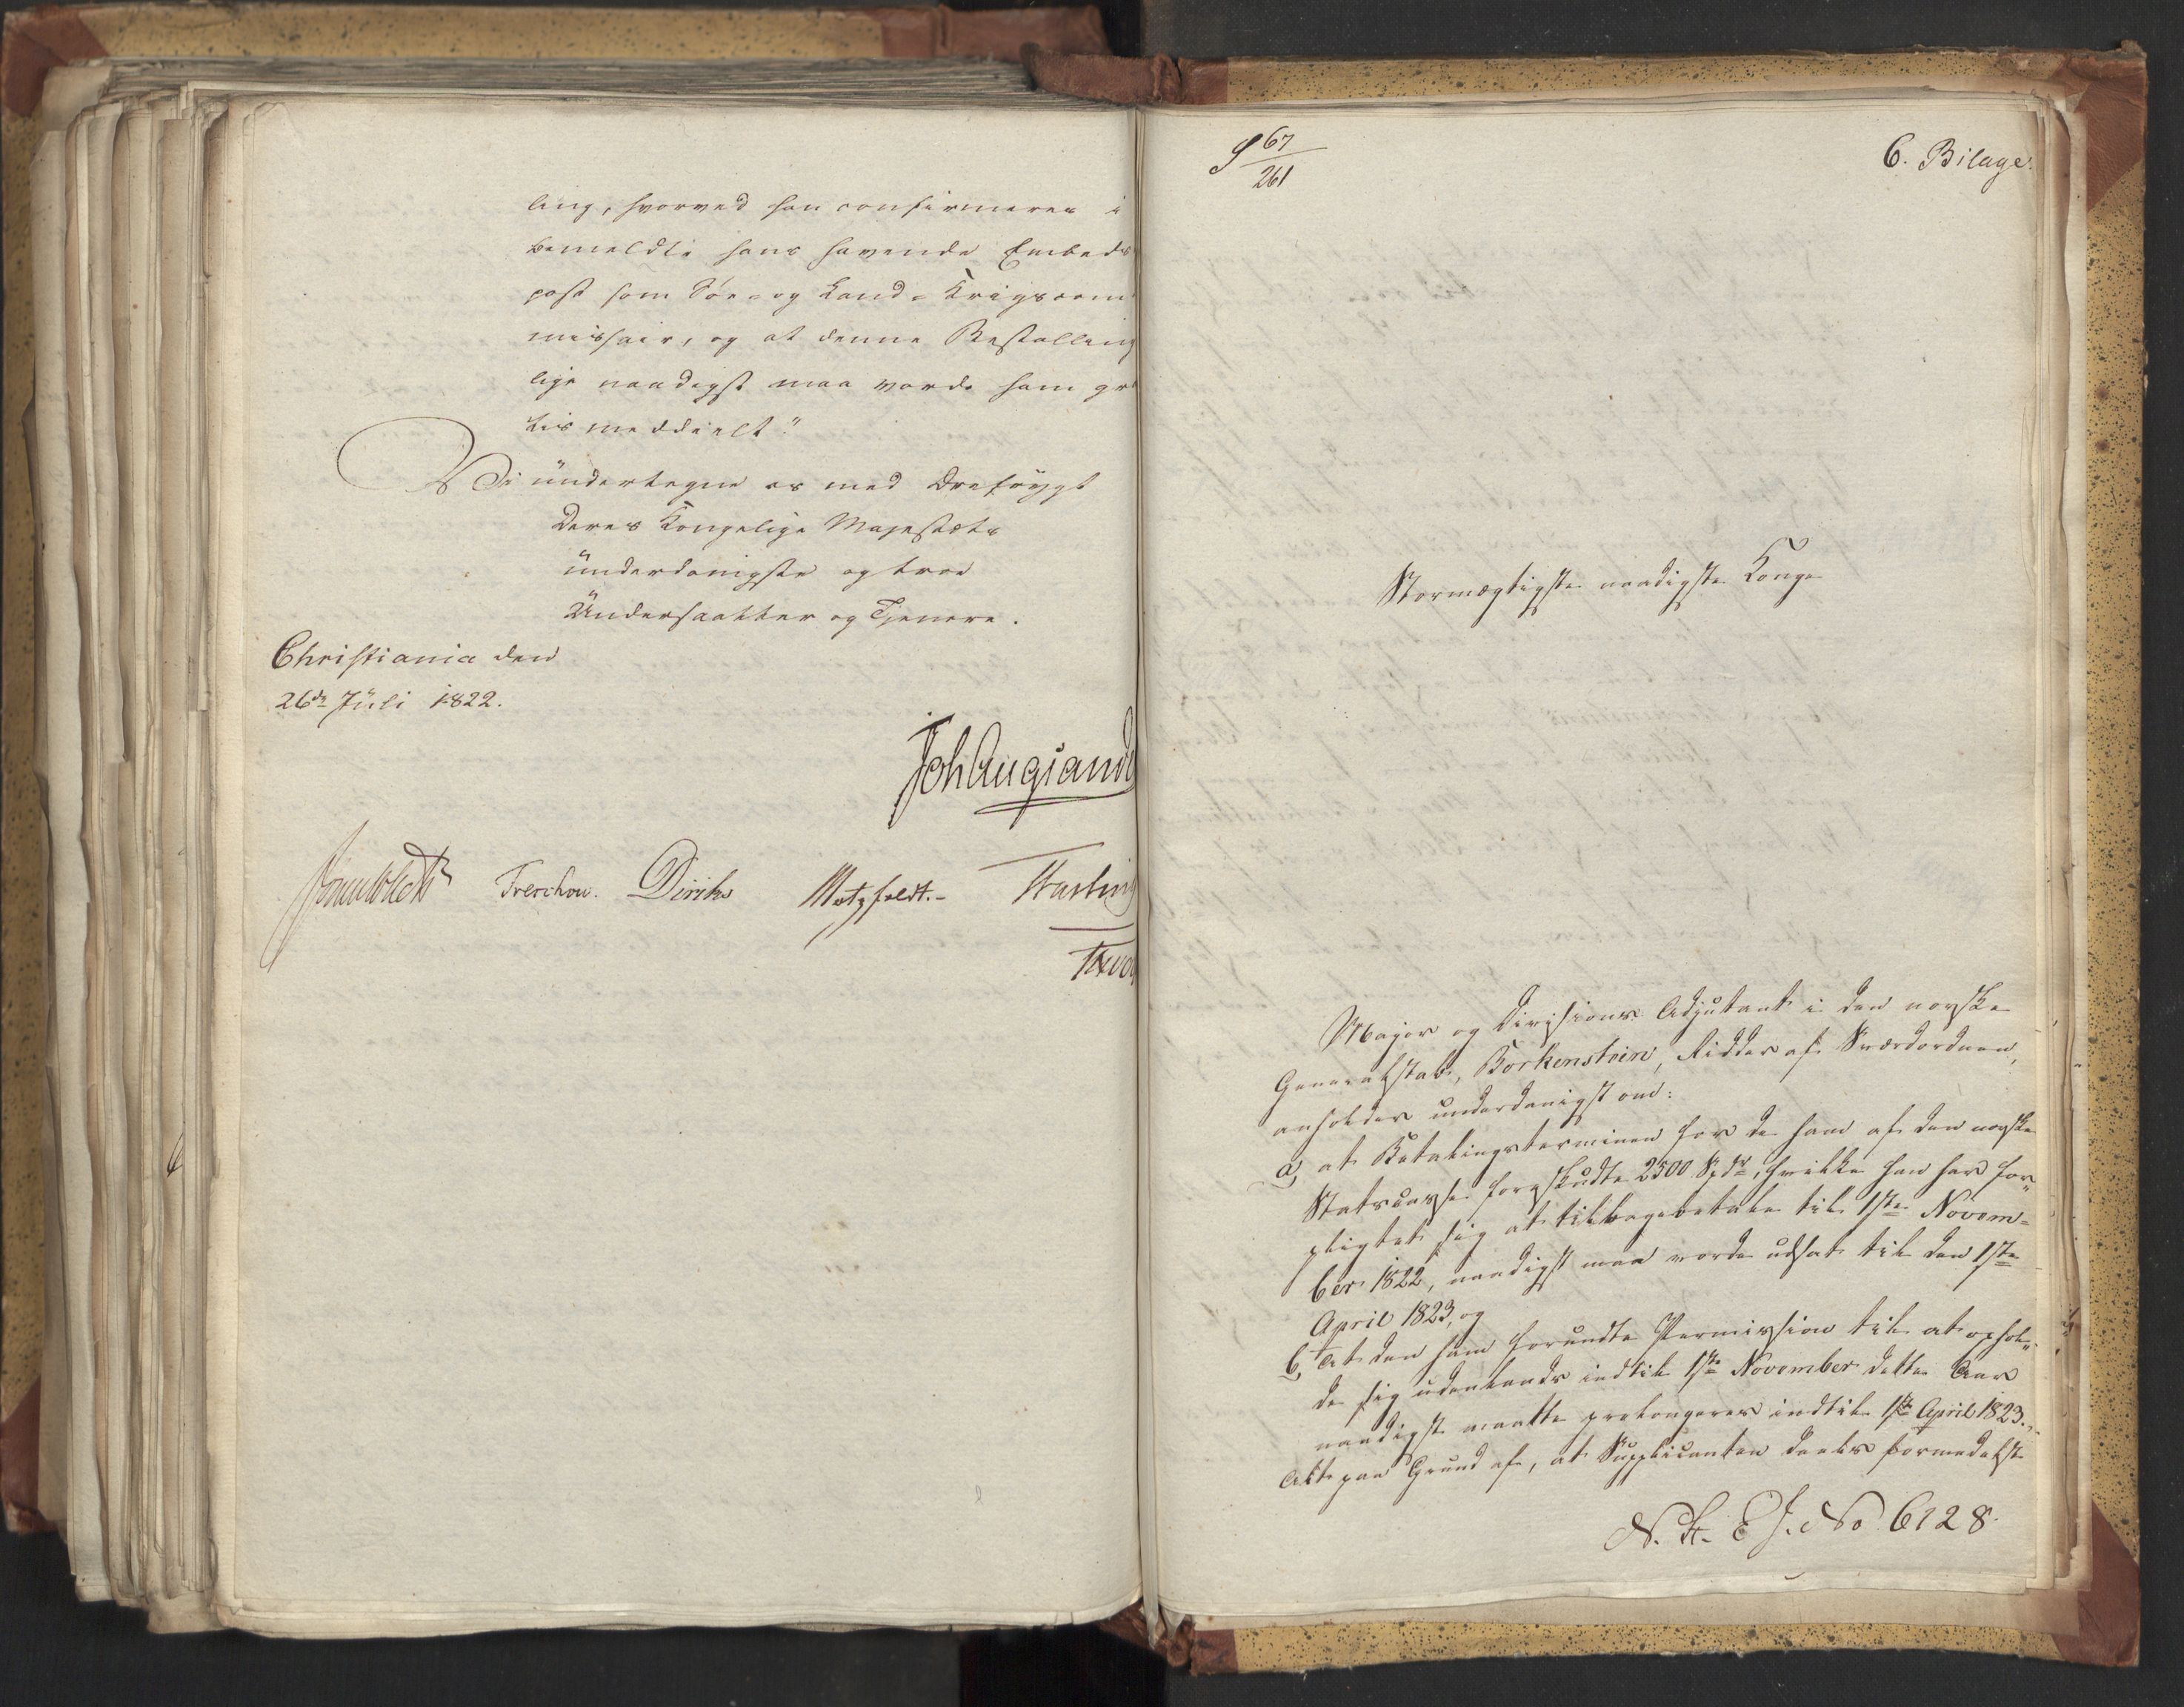 ling, hvorved han confirmeres i
bemeldte hans havende Embeds
post som Søe- og Land- Krigscom
missair, og at denne Bestalling
lige naadigst maa vorde ham gra
tis meddeelt."
Vi undertegne os med Ærefrygt
Deres Kongelige Majestæts
underdanigste og troe
Undersaatter og Tjenere.
Christiania den
26de Juli 1822.
Joh Aug Sande
Sommerhielm Treschow. Diriks Motzfeldt.- Hasting
S 67/261
6. Bilage.
Stormægtigste naadigste Konge
Major og Divisions Adjutant i den norske
Generalstab, Borkenstein, Ridder af Sværdordnen,
anholder underdanigst om:
a, at Betalingsterminen for de ham af den norske
Statscasse forskudte 2500 Spdr, hvilke han har for„
pligtet sig at tilbagebetale til 1ste Novem=
ber 1822, naadigst maa vorde udsat til den 1ste
April 1823, og
b, At den ham forundte Permission til at ophol„
de sig udenlands indtil 1ste November dette Aar
naadigst maatte prolongeres indtil 1ste April 1823.
Alt paa Grund af, at Supplicanten deels formedelst
N. St. E J. No 6128.